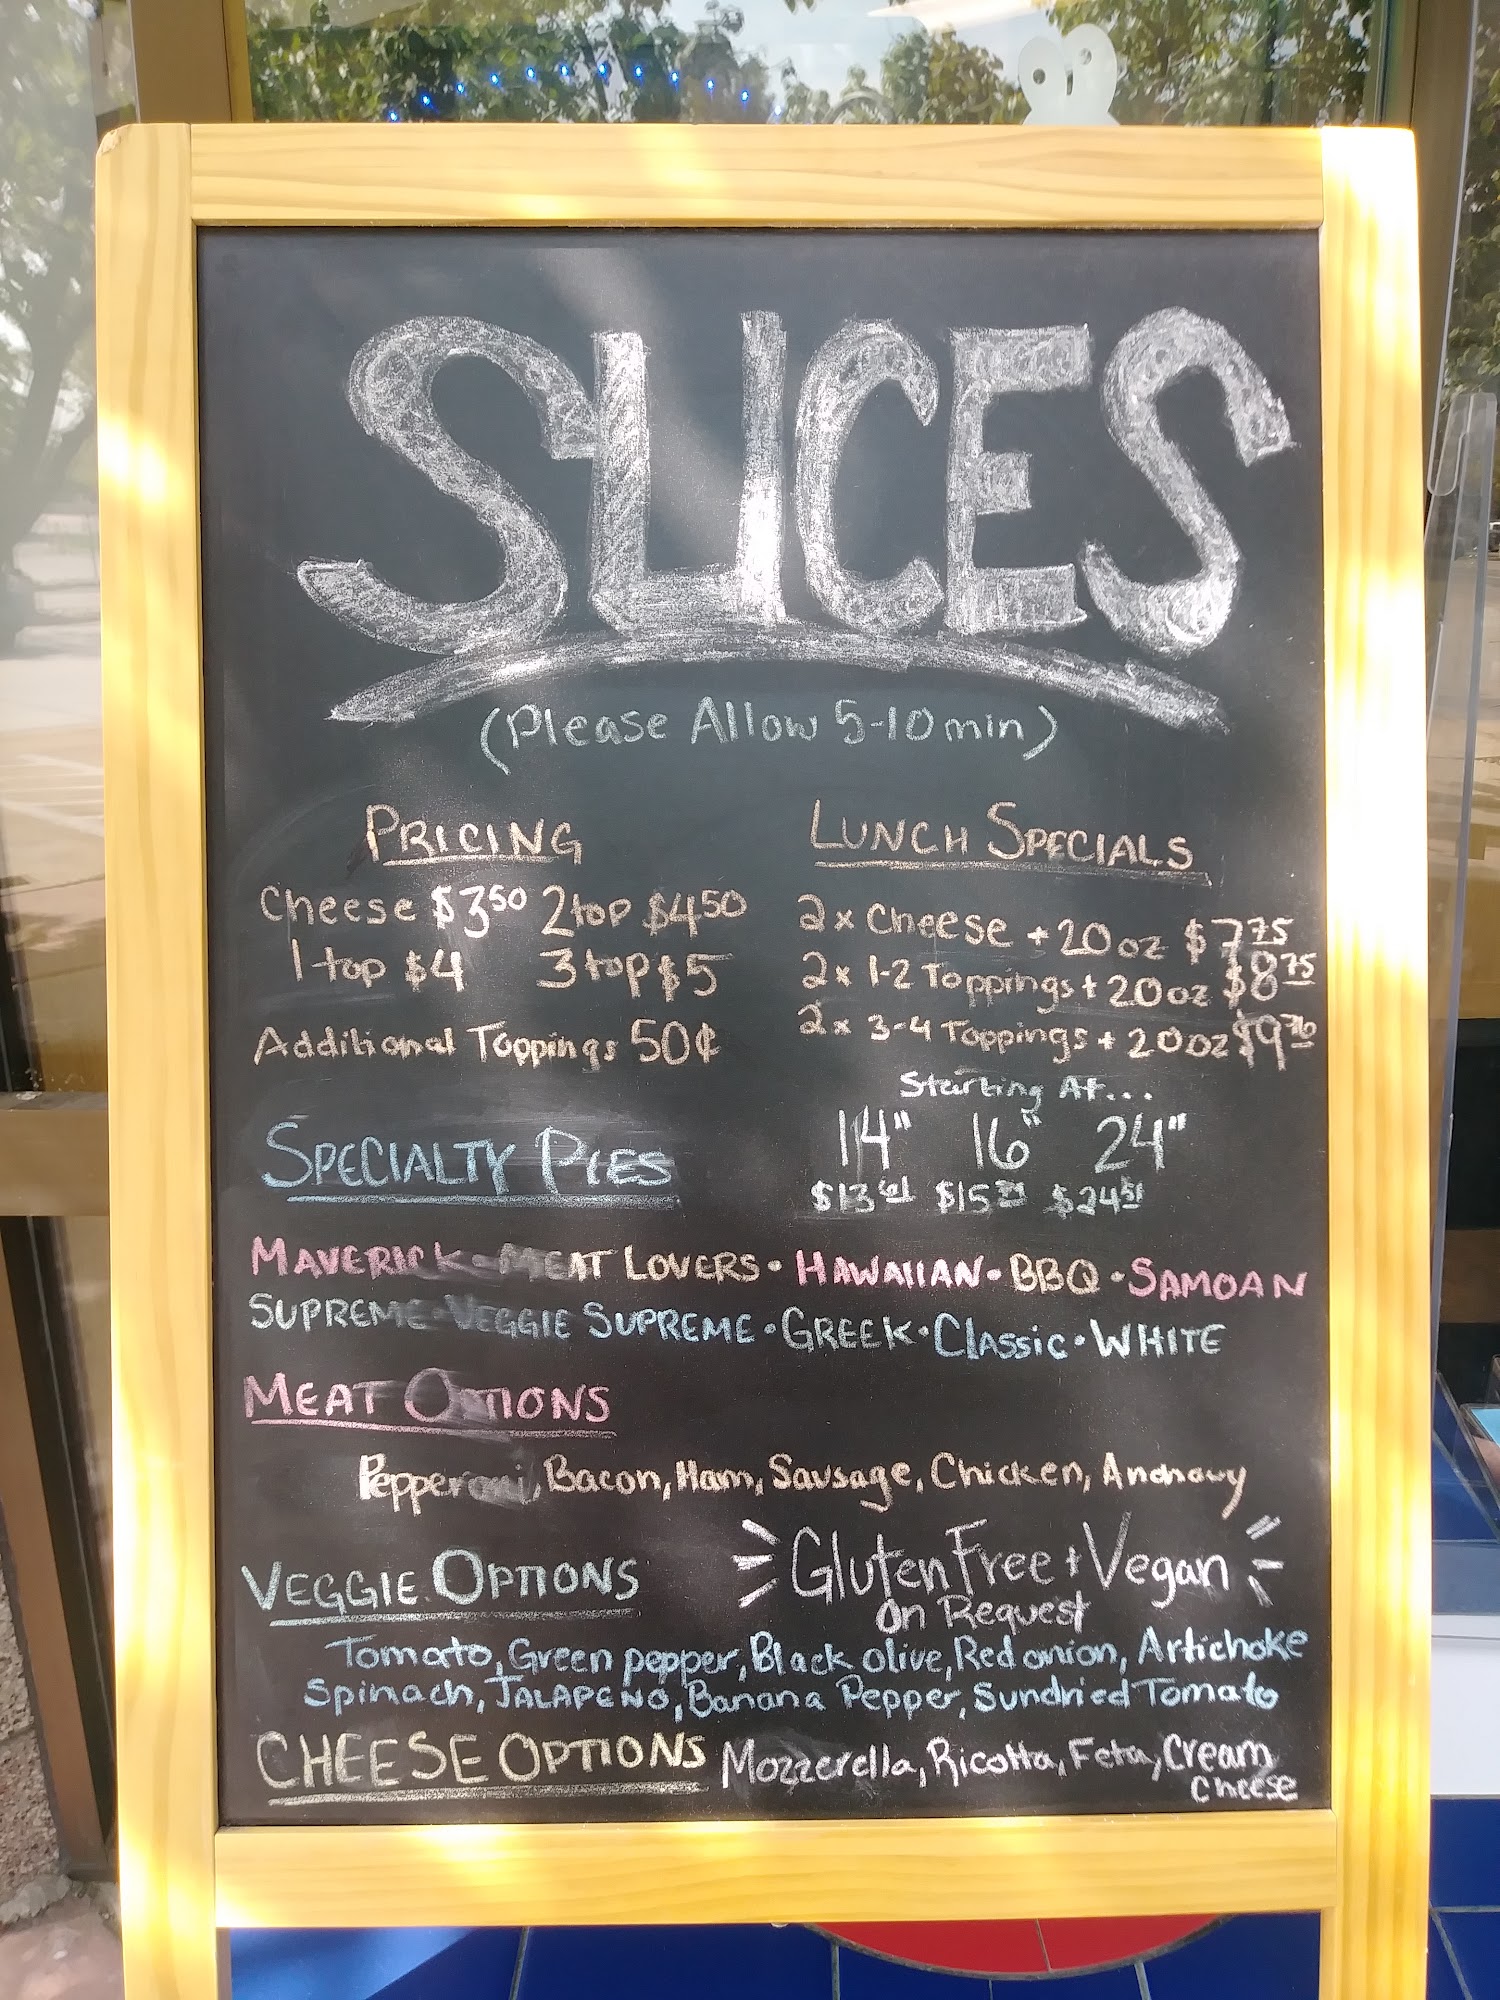 SLICES
(Please Allow 5-10 min)
PRICING
Cheese $3.50 2 top $4.50
1 top $4 3 top $5
Additional Toppings 50¢
LUNCH SPECIALS
2x Cheese + 20oz $7.75
2x 1-2 Toppings + 20oz $8.75
2x 3-4 Toppings + 20oz
Starting At...
14" 16" 24"
$24.51
SPECIALTY PIES
MAVERICK · MEAT LOVERS · HAWAIIAN · BBQ · SAMOAN
SUPREME · VEGGIE SUPREME · GREEK · Classic · WHITE
MEAT OPTIONS
Pepperoni, Bacon, Ham, Sausage, Chicken,
Gluten Free + Vegan
On Request
VEGGIE OPTIONS
Tomato, Green pepper, Black olive, Red onion, Artichoke
Spinach, JALAPENO, Banana Pepper, Sundried Tomato
CHEESE OPTIONS Mozzerella, Ricotta, Feta, Cream
cheese